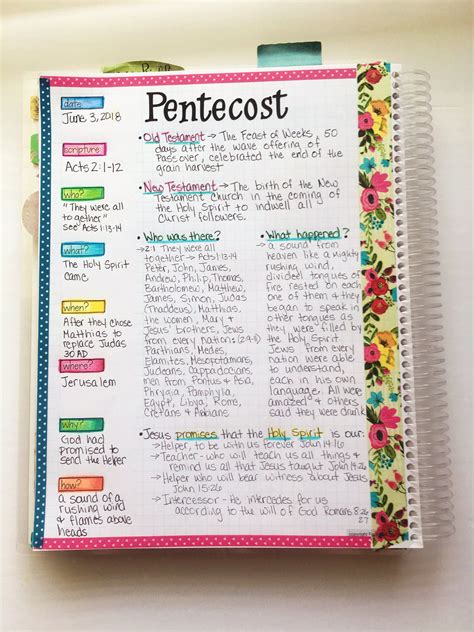 date
June 3, 2018
scripture
Acts 2:1-12
who?
"They were all
together"
see Acts 1:13-14
what?
The Holy Spirit
came
when?
After they chose
Matthias to
replace Judas
30 AD
where?
Jerusalem
why?
God had
promised to
send the Helper
how?
a sound of a
rushing wind
& flames above
heads
Pentecost
• Old Testament → The Feast of Weeks, 50
days after the wave offering of
Passover, celebrated the end of the
grain harvest
• New Testament → The birth of the New
Testament Church in the coming of
the Holy Spirit to indwell all of
Christ followers.
• Who was there?
→ 2:1 They were all
together → Acts 1:13-14
Peter, John, James,
Andrew, Philip, Thomas,
Bartholomew, Matthew,
James, Simon, Judas
(Thaddeus) Matthias,
the women, Mary &
Jesus' brothers, Jews
from every nation: (2:9-11)
Parthians, Medes,
Elamites, Mesopotamians,
Judeans, Cappadocians,
men from Pontus & Asia,
Phrygia, Pamphylia,
Egypt, Libya, Rome,
Cretans & Arabians
What happened?
a sound from
heaven like a mighty
rushing wind,
divided tongues of
fire rested on each
one of them & they
began to speak in
other tongues as
they were filled by
the Holy Spirit
Jews from every
nation were able
to understand,
each in his own
language. All were
amazed & others
said they were drunk
• Jesus promises that the Holy Spirit is our:
→ Helper, to be with us forever John 14:16
→ Teacher - who will teach us all things &
remind us all that Jesus taught John 14:26
→ Helper who will bear witness about Jesus
John 15:26
→ Intercessor - He intercedes for us
according to the will of God Romans 8:26
27